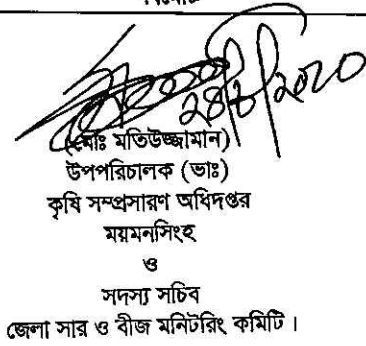 (মোঃ মতিউজ্জামান)
উপপরিচালক (ভাঃ)
কৃষি সম্প্রসারণ অধিদপ্তর
ময়মনসিংহ
ও
সদস্য সচিব
জেলা সার ও বীজ মনিটরিং কমিটি।